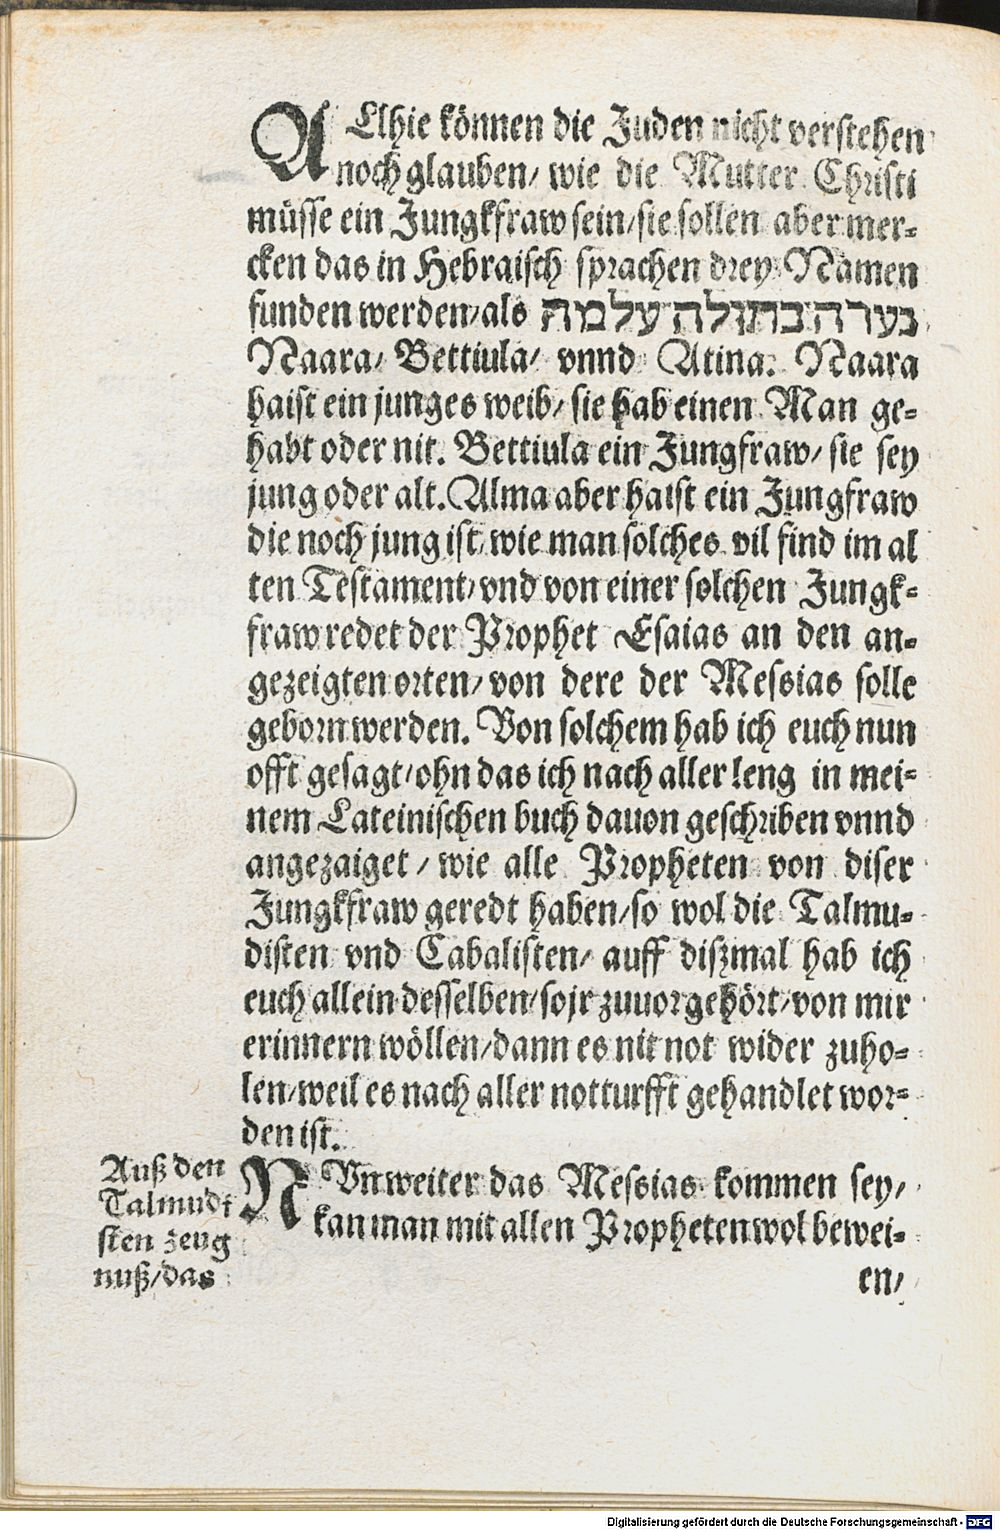 ALlhie können die Juden nicht verstehen
noch glauben/ wie die Mutter Christi
müsse ein Jungkfraw sein/ sie sollen aber mer-
cken das in Hebraisch sprachen drey Namen
funden werden/ als נערה בתולה עלמה
Naara/ Bettiula/ vnnd Atina. Naara
haist ein junges weib/ sie hab einen Man ge-
habt oder nit. Bettiula ein Jungfraw/ sie sey
jung oder alt. Alma aber haist ein Jungfraw
die noch jung ist/ wie man solches vil find im al
ten Testament/ vnd von einer solchen Jungk-
fraw redet der Prophet Esaias an den an-
gezeigten orten/ von dere der Messias solle
geborn werden. Von solchem hab ich euch nun
offt gesagt/ ohn das ich nach aller leng in mei-
nem Lateinischen buch dauon geschriben vnnd
angezaiget/ wie alle Propheten von diser
Jungkfraw geredt haben/ so wol die Talmu-
disten vnd Cabalisten/ auff dißmal hab ich
euch allein desselben/ so jr zuuor gehört/ von mir
erinnern wöllen/ dann es nit not wider zuho-
len/ weil es nach aller notturfft gehandlet wor-
den ist.
NVn weiter das Messias kommen sey/
kan man mit allen Propheten wol bewei-
en/
Auß den
Talmudi
sten zeug
nuß/ das
Digitalisierung gefördert durch die Deutsche Forschungsgemeinschaft - DFG